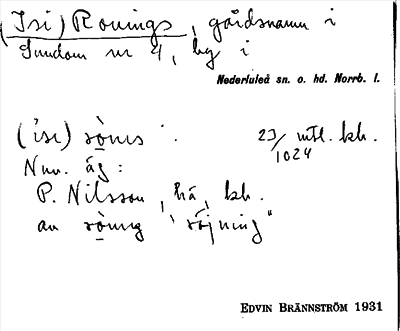 (Isi) Ronings, gårdsnamn i
Sundom nr 4, by i
Nederluleå sn. o. hd. Norrb. l.
(isi) rò̱nıs. 23/1024 mtl. bh.
Nuv. äg:
P. Nilsson, här, bh.
av rò̱nıŋ "röjning"
EDVIN BRÄNNSTRÖM 1931